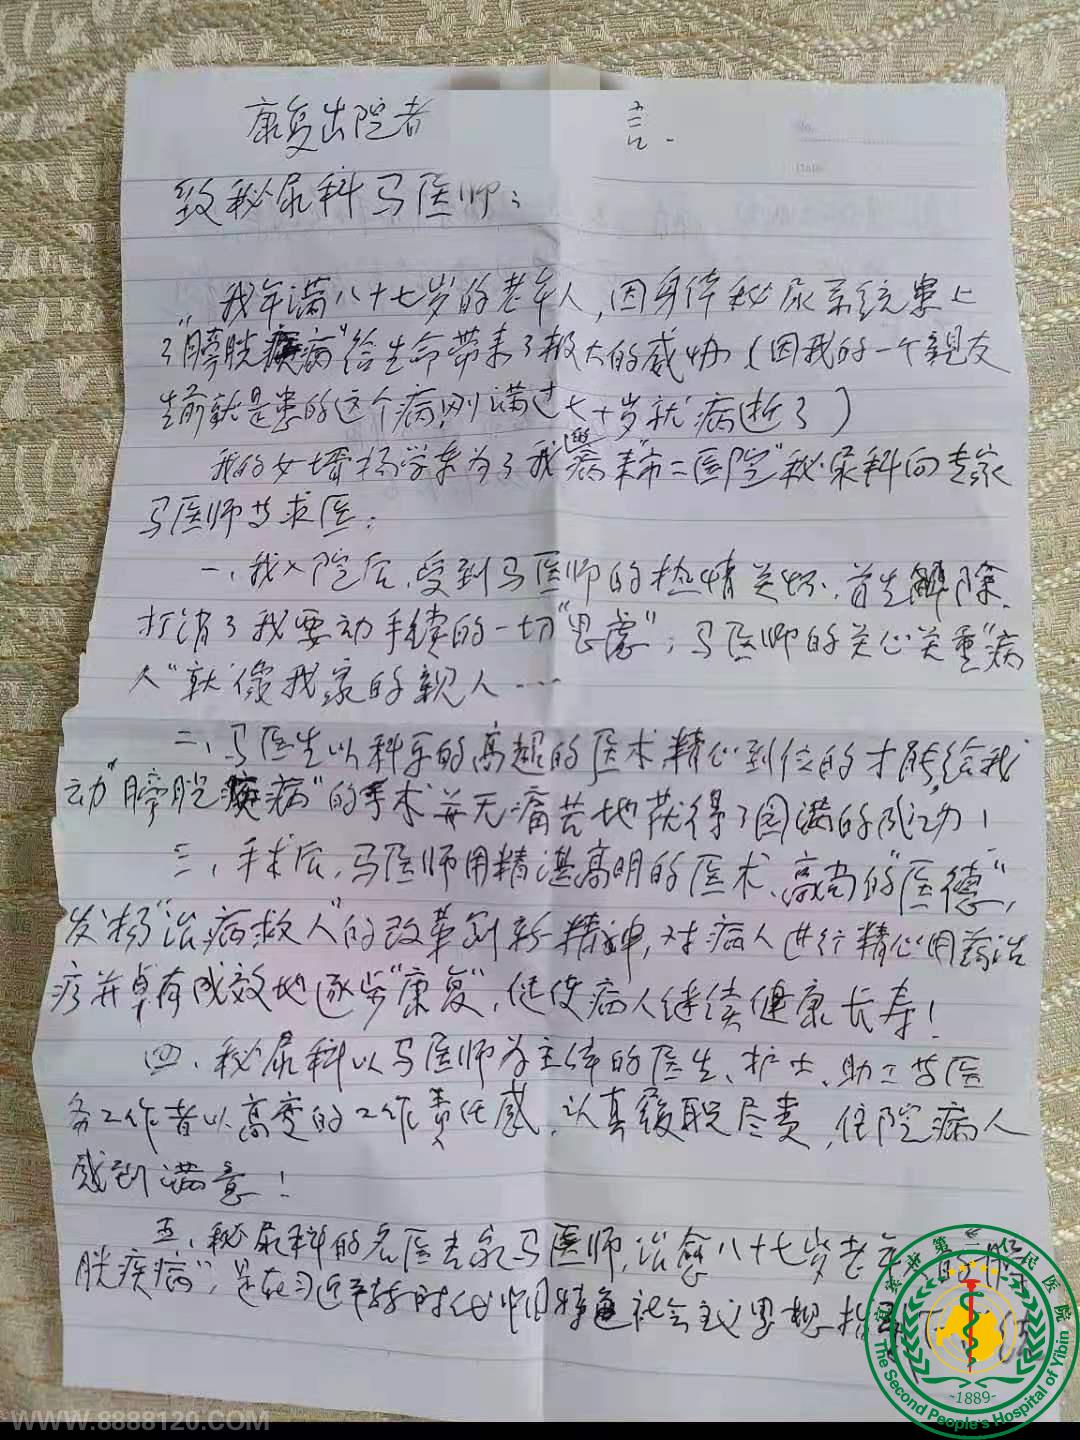 康复出院者 言.
No.
Date
致秘尿科马医师:
我年满八十七岁的老年人,因身体秘尿系统患上
了"膀胱疾病"给生命带来了极大的威胁(因我的一个親友
生前就是患的这个病,刚满过七十岁就病逝了)
我的女壻杨学东为了我 病来"市二医院"秘尿科向专家
马医师 求医:
一、我入院后,受到马医师的热情关怀,首先解除、
打消了我要动手续的一切"思虑";马医师的关心关重"病
人"就像我家的親人……
二、马医生以科学的高超的医术精心到位的才能给我
动"膀胱疾病"的手术并无痛苦地获得了圆满的成功!
三、手术后,马医师用精湛高明的医术、高尚的"医德",
发扬"治病救人"的改革创新精神,对病人进行精心用药治
疗并卓有成效地逐步"康复",促使病人继续健康长寿!
四、秘尿科以马医师为主体的医生、护士、助工 医
务工作者以高度的工作责任感,认真履职尽责,住院病人
感到满意!
五、秘尿科的名医专家马医师,治愈八十七岁老年
胱疾病",是在习近平新时代中国特色社会主义思想指
宜宾市第二人民医院
The Second People's Hospital of Yibin
-1889-
WWW.8888120.COM